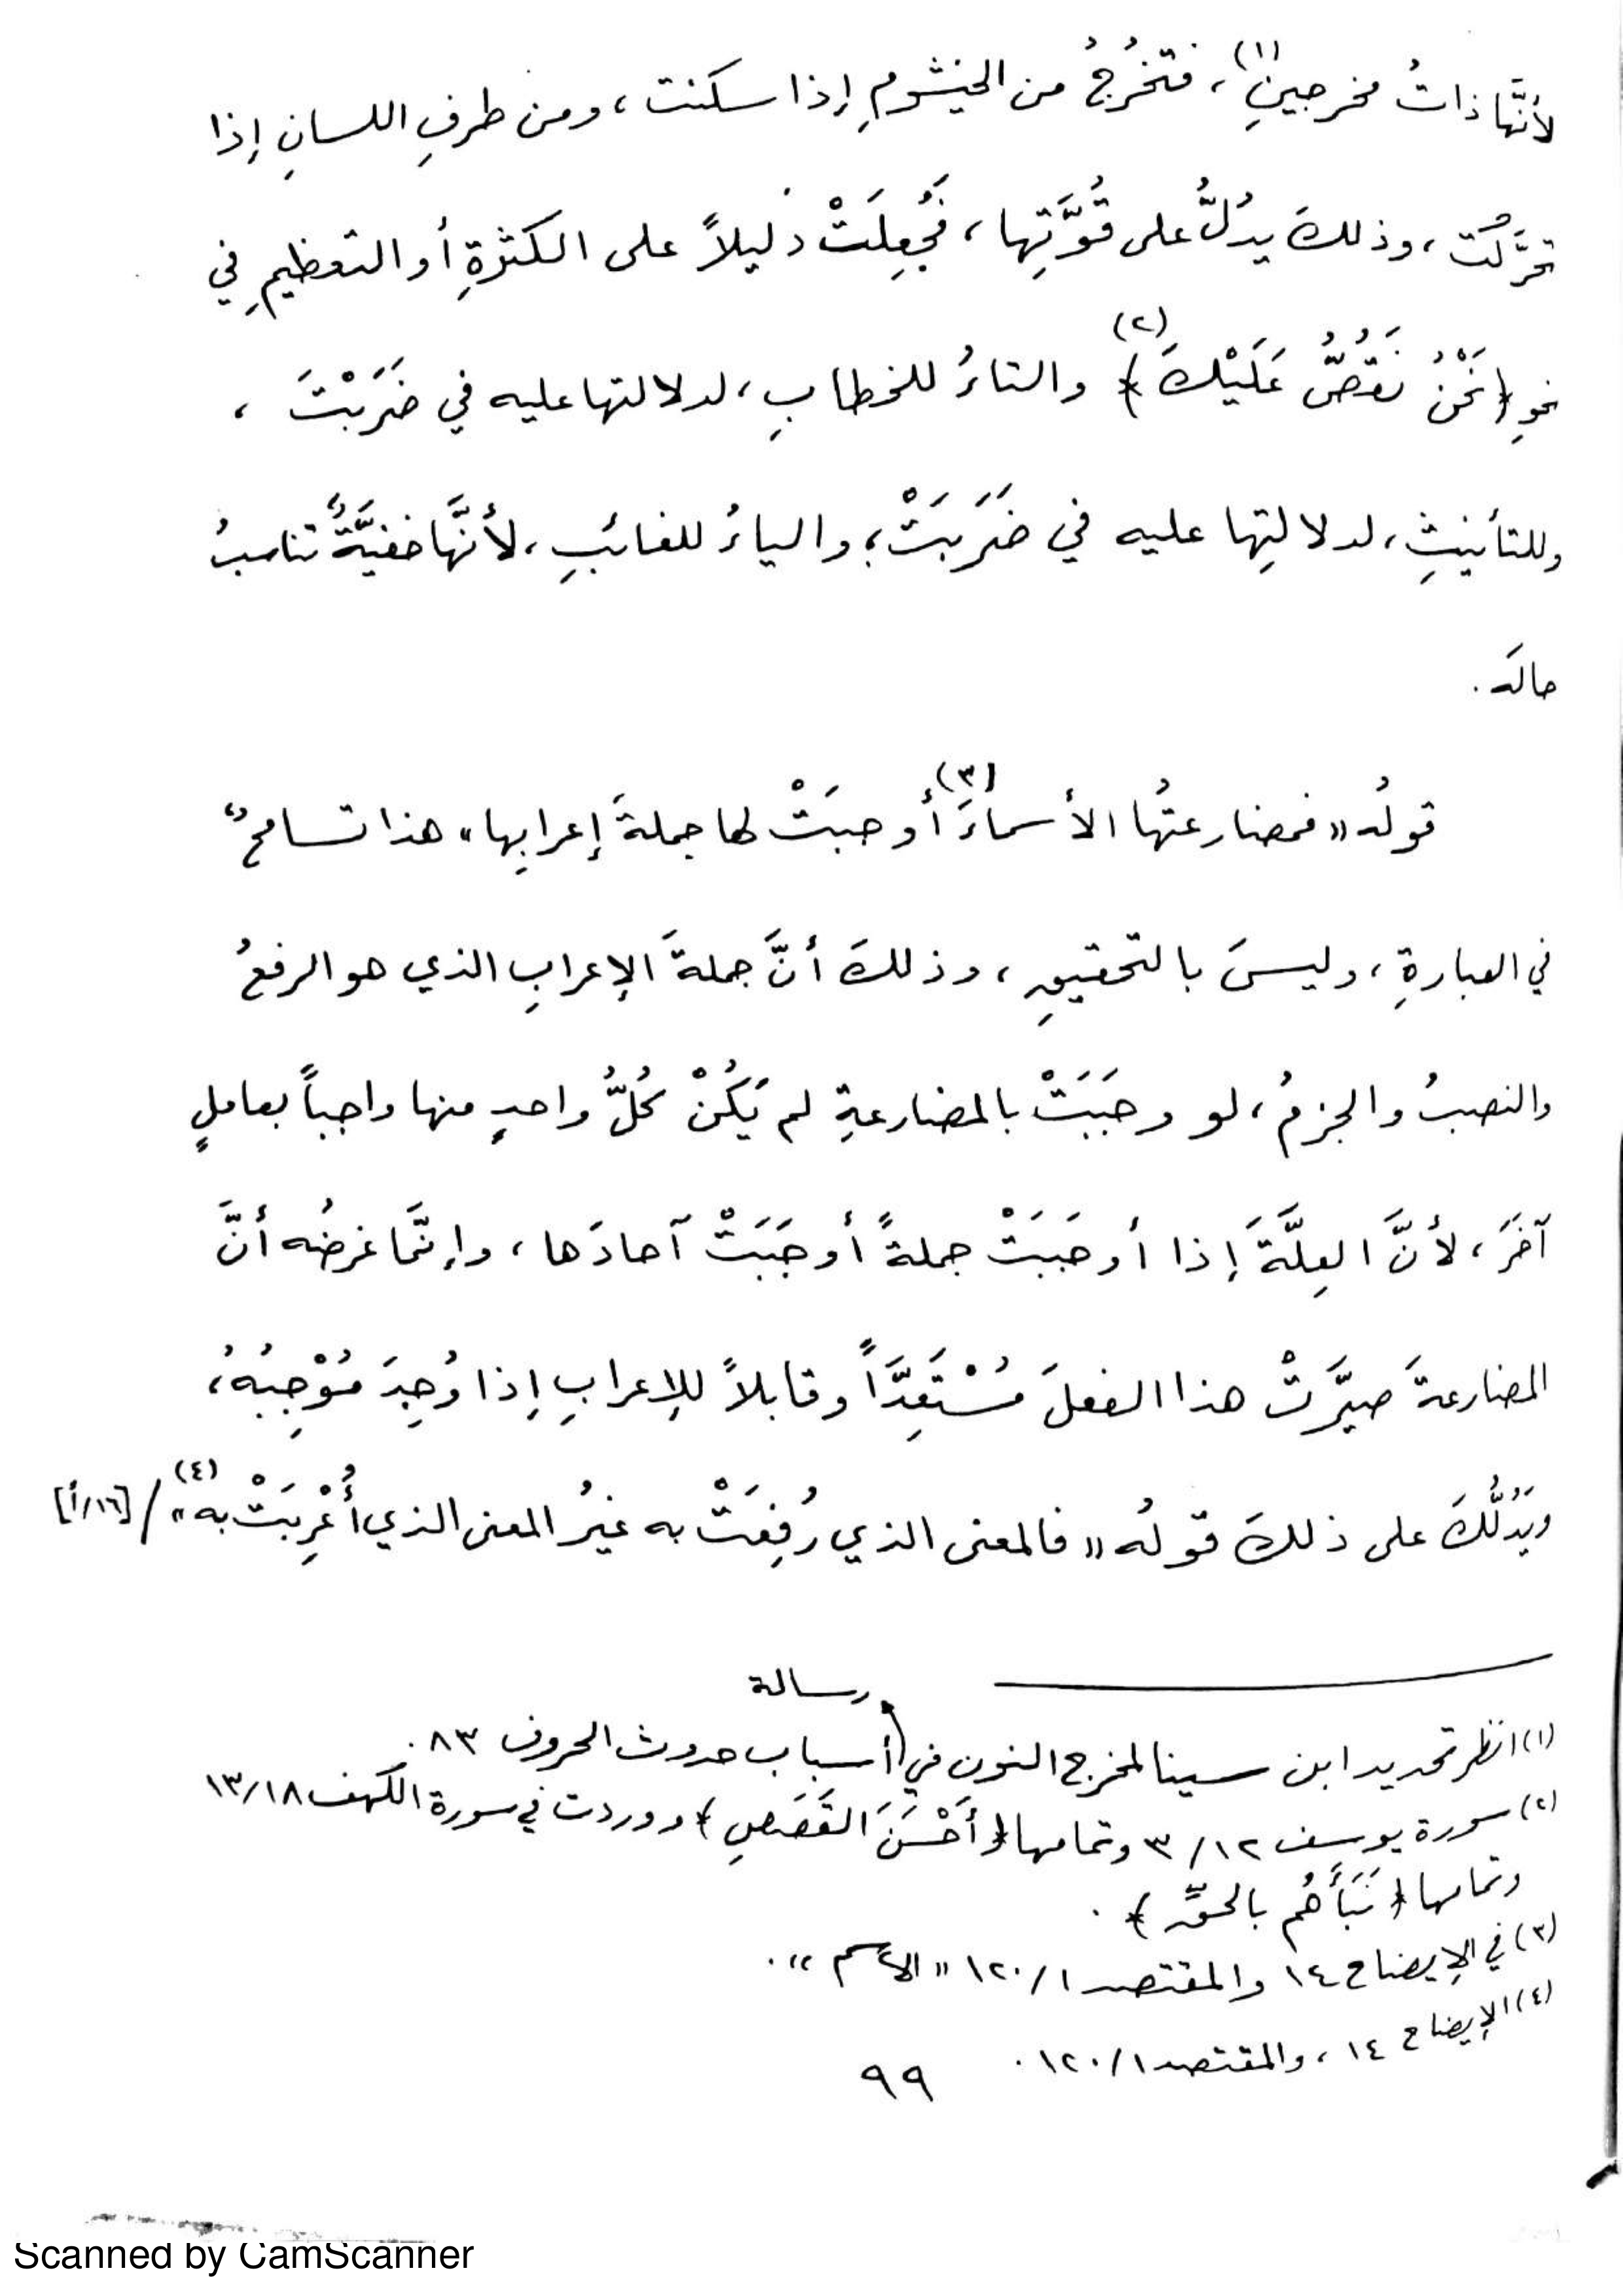 لأنَّها ذاتُ مخرجينِ(١)، فتخرُجُ من الخيشومِ إذا سكنت، ومن طرفِ اللسانِ إذا
تحرَّكت، وذلكَ يدُلُّ على قُوَّتِها، فَجُعِلَتْ دليلاً على الكثرةِ أو التعظيمِ في
نحوِ ﴿نَحْنُ نَقُصُّ عَلَيْكَ﴾(٢) والتاءُ للخطابِ، لدلالتها عليه في ضَرَبْتَ،
وللتأنيثِ، لدلالتِها عليه في ضَرَبَتْ؛ والياءُ للغائبِ، لأنَّها خفيَّةٌ تناسبُ
حالَه.
قولُه «فمضارعتُها الأسماءَ(٣) أوجبَتْ لها جملةَ إعرابِها» هذا تسامحٌ
في العبارةِ، وليسَ بالتحقيقِ، وذلكَ أنَّ جملةَ الإعرابِ الذي هو الرفعُ
والنصبُ والجزمُ، لو وجَبَتْ بالمضارعةِ لم يَكُنْ كُلُّ واحدٍ منها واجباً بعاملٍ
آخَرَ، لأنَّ العِلَّةَ إذا أوجَبَتْ جملةً أوجَبَتْ آحادَها، وإنَّما غرضُه أنَّ
المضارعةَ صيَّرَتْ هذا الفعلَ مُسْتَعِدَّاً وقابلاً للإعرابِ إذا وُجِدَ مُوْجِبُهُ،
ويَدُلُّكَ على ذلكَ قولُه «فالمعنى الذي رُفِعَتْ به غيرُ المعنى الذي أُعْرِبَتْ به»(٤) / [١٦/أ]
(١) انظر تحديد ابن سينا لمخرج النون في رسالة أسباب حدوث الحروف ٨٣.
(٢) سورة يوسف ٣/١٢ وتمامها ﴿أَحْسَنَ القَصَصِ﴾ ووردت في سورة الكهف ١٣/١٨
وتمامها ﴿نَبَأَهُم بالحقِّ﴾.
(٣) في الإيضاح ١٤ والمقتصد ١٢٠/١ «الاسم».
(٤) الإيضاح ١٤، والمقتصد ١٢٠/١.
٩٩
Scanned by CamScanner